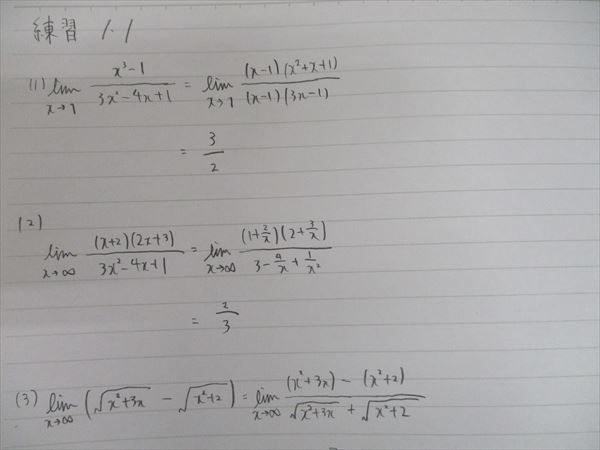 練習 1.1
(1) lim_{x→1} (x³-1)/(3x²-4x+1) = lim_{x→1} (x-1)(x²+x+1)/(x-1)(3x-1)
= 3/2
(2)
lim_{x→∞} (x+2)(2x+3)/(3x²-4x+1) = lim_{x→∞} (1+2/x)(2+3/x)/(3-4/x+1/x²)
= 2/3
(3) lim_{x→∞} (√(x²+3x) - √(x²+2)) = lim_{x→∞} ((x²+3x)-(x²+2))/(√(x²+3x)+√(x²+2))